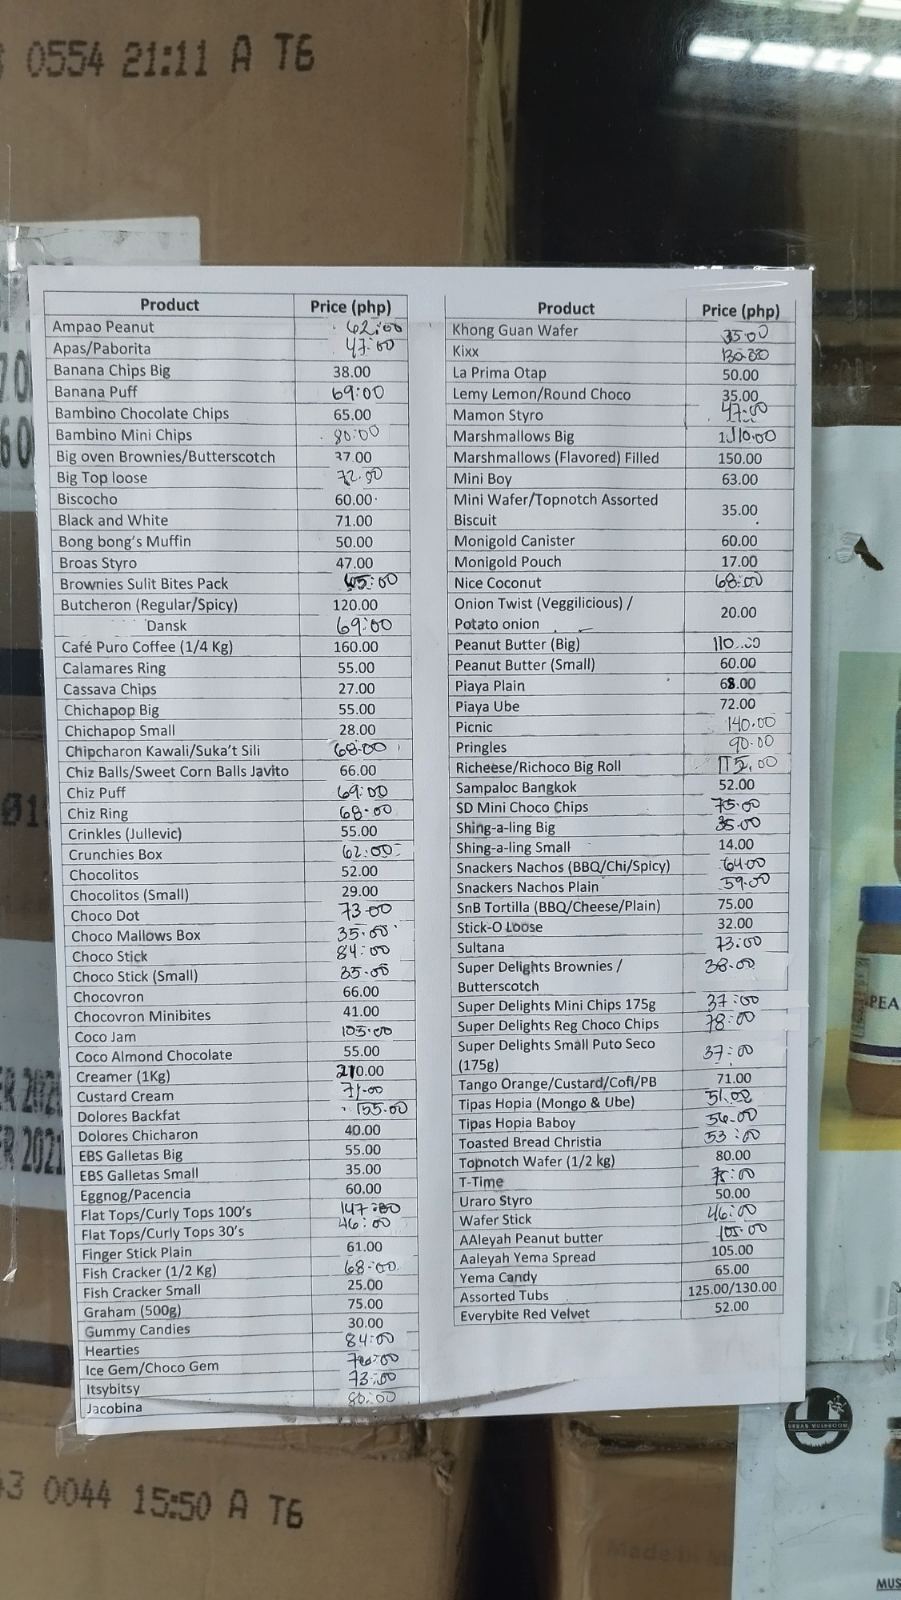 0554 21:11 A T6
Product Price (php)
Ampao Peanut 62.00
Apas/Paborita 47.00
Banana Chips Big 38.00
Banana Puff 69:00
Bambino Chocolate Chips 65.00
Bambino Mini Chips 80:00
Big oven Brownies/Butterscotch 37.00
Big Top loose 72.00
Biscocho 60.00
Black and White 71.00
Bong bong's Muffin 50.00
Broas Styro 47.00
Brownies Sulit Bites Pack 45:00
Butcheron (Regular/Spicy) 120.00
Dansk 69:00
Café Puro Coffee (1/4 Kg) 160.00
Calamares Ring 55.00
Cassava Chips 27.00
Chichapop Big 55.00
Chichapop Small 28.00
Chipcharon Kawali/Suka't Sili 68.00
Chiz Balls/Sweet Corn Balls Javito 66.00
Chiz Puff 69:00
Chiz Ring 68.00
Crinkles (Jullevic) 55.00
Crunchies Box 62:00
Chocolitos 52.00
Chocolitos (Small) 29.00
Choco Dot 73.00
Choco Mallows Box 35.00
Choco Stick 84.00
Choco Stick (Small) 35.00
Chocovron 66.00
Chocovron Minibites 41.00
Coco Jam 105.00
Coco Almond Chocolate 55.00
Creamer (1Kg) 210.00
Custard Cream 71.00
Dolores Backfat 155.00
Dolores Chicharon 40.00
EBS Galletas Big 55.00
EBS Galletas Small 35.00
Eggnog/Pacencia 60.00
Flat Tops/Curly Tops 100's 147:00
Flat Tops/Curly Tops 30's 46:00
Finger Stick Plain 61.00
Fish Cracker (1/2 Kg) 68.00
Fish Cracker Small 25.00
Graham (500g) 75.00
Gummy Candies 30.00
Hearties 84:00
Ice Gem/Choco Gem
Itsybitsy 73.00
Jacobina 80.00
Product Price (php)
Khong Guan Wafer 35.00
Kixx
La Prima Otap 50.00
Lemy Lemon/Round Choco 35.00
Mamon Styro 47.00
Marshmallows Big 110.00
Marshmallows (Flavored) Filled 150.00
Mini Boy 63.00
Mini Wafer/Topnotch Assorted
Biscuit 35.00
Monigold Canister 60.00
Monigold Pouch 17.00
Nice Coconut 68:00
Onion Twist (Veggilicious) /
Potato onion 20.00
Peanut Butter (Big) 110.00
Peanut Butter (Small) 60.00
Piaya Plain 68.00
Piaya Ube 72.00
Picnic 140.00
Pringles 90.00
Richeese/Richoco Big Roll 115.00
Sampaloc Bangkok 52.00
SD Mini Choco Chips 75.00
Shing-a-ling Big 35.00
Shing-a-ling Small 14.00
Snackers Nachos (BBQ/Chi/Spicy) 64.00
Snackers Nachos Plain 59.00
SnB Tortilla (BBQ/Cheese/Plain) 75.00
Stick-O Loose 32.00
Sultana 73.00
Super Delights Brownies / 38.00
Butterscotch
Super Delights Mini Chips 175g 37:00
Super Delights Reg Choco Chips 78:00
Super Delights Small Puto Seco
(175g) 37:00
Tango Orange/Custard/Cofi/PB 71.00
Tipas Hopia (Mongo & Ube)
Tipas Hopia Baboy 56.00
Toasted Bread Christia 53:00
Topnotch Wafer (1/2 kg) 80.00
T-Time 75:00
Uraro Styro 50.00
Wafer Stick 46:00
AAleyah Peanut butter 105.00
Aaleyah Yema Spread 105.00
Yema Candy 65.00
Assorted Tubs 125.00/130.00
Everybite Red Velvet 52.00
0044 15:50 A T6
PEA
URBAN MUSHROOM
MUS